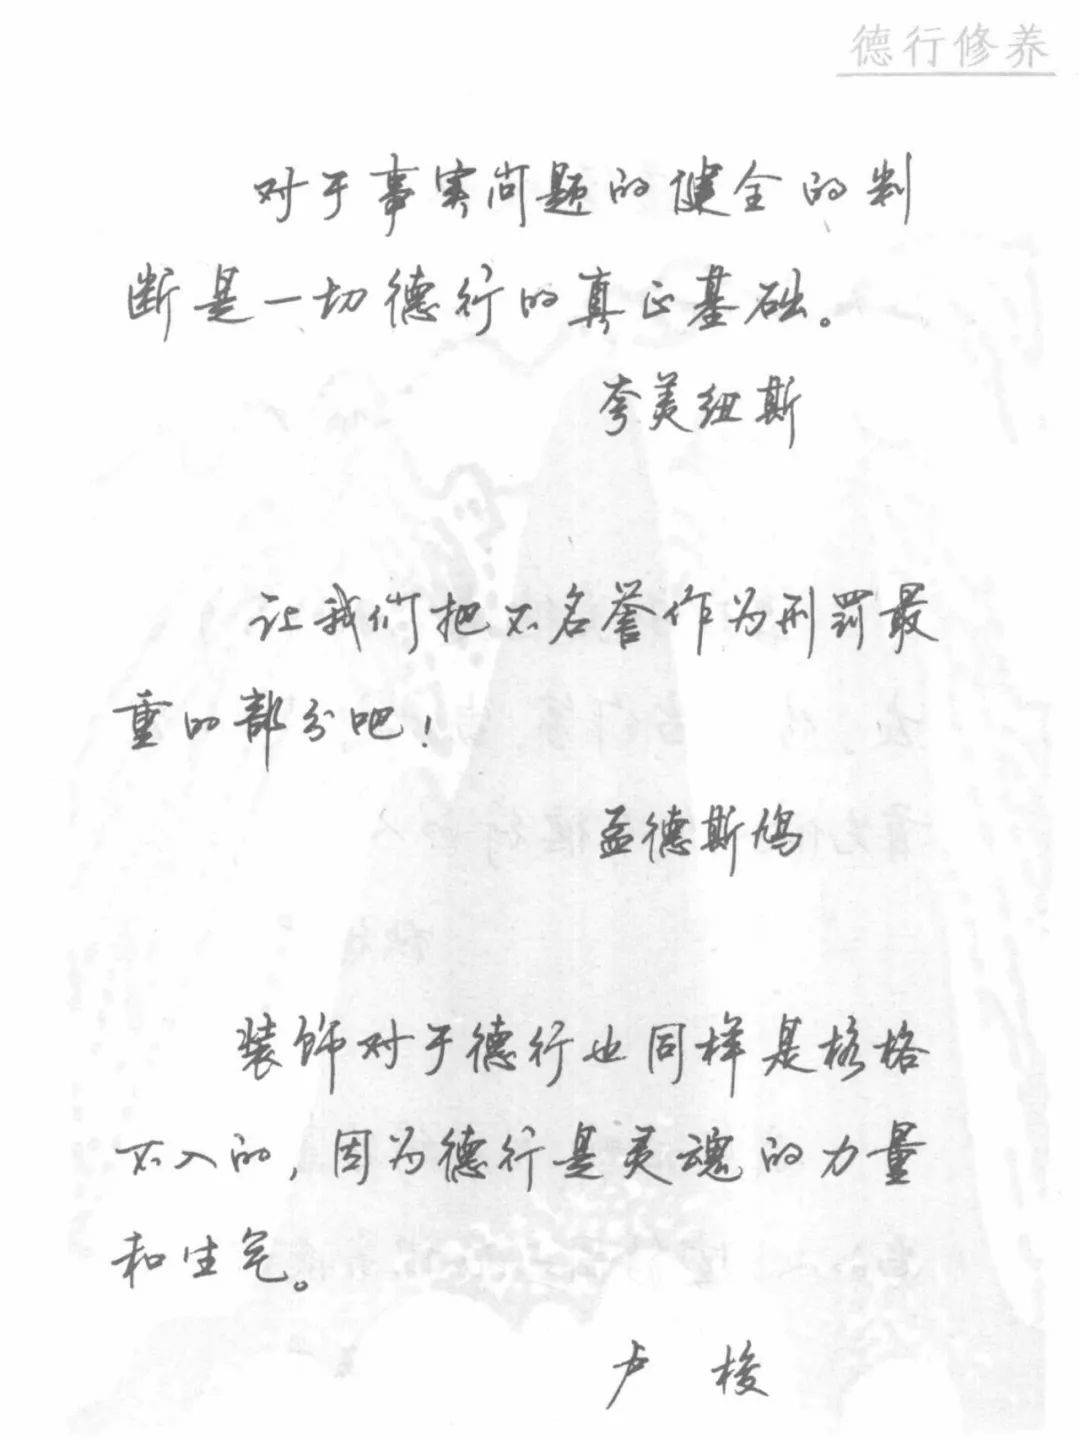 德行修养
对于事实问题的健全的判
断是一切德行的真正基础。
夸美纽斯
让我们把不名誉作为刑罚最
重的部分吧！
孟德斯鸠
装饰对于德行也同样是格格
不入的，因为德行是灵魂的力量
和生气。
卢梭